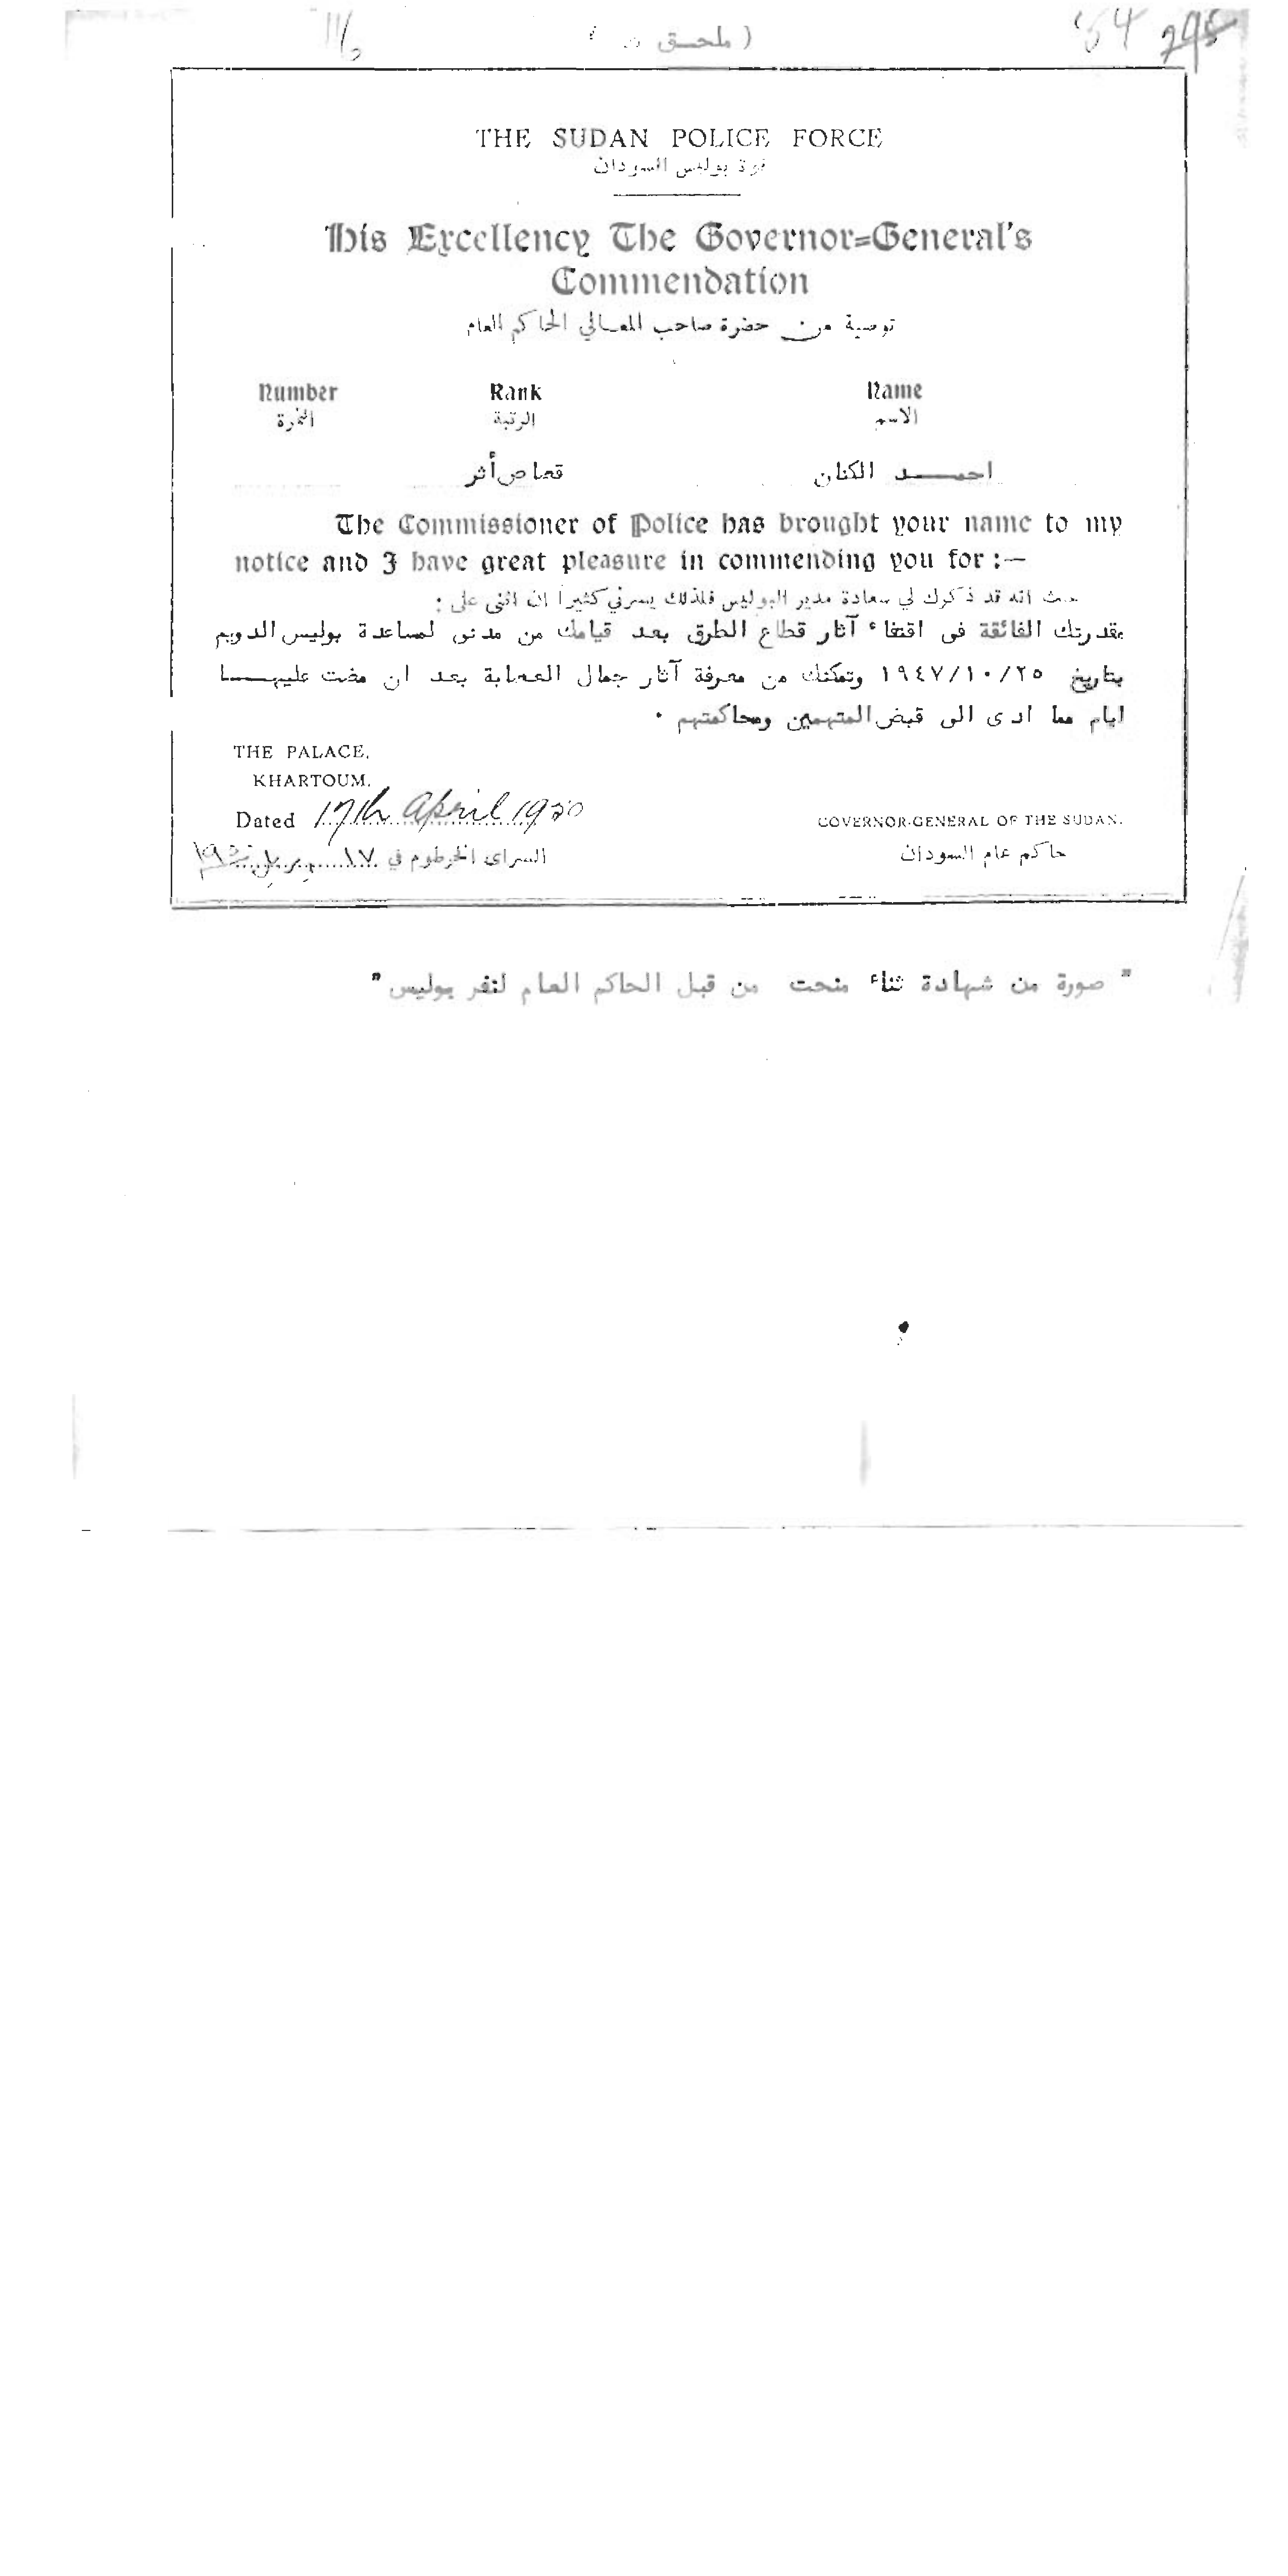 ( ملحق
THE SUDAN POLICE FORCE
قوة بوليس السودان
His Excellency The Governor=General's
Commendation
توصية من حضرة صاحب المعالي الحاكم العام
Number Rank Name
النمرة الرتبة الاسم
احمـــد الكنان قصاص أثر
The Commissioner of Police has brought your name to my
notice and I have great pleasure in commending you for :—
حيث انه قد ذكرك لي سعادة مدير البوليس فلذلك يسرني كثيراً ان اثنى على :
مقدرتك الفائقة فى اقتفاء آثار قطاع الطرق بعد قيامك من مدنى لمساعدة بوليس الدويم
بتاريخ ١٩٤٧/١٠/٢٥ وتمكنك من معرفة آثار جمال العصابة بعد ان مضت عليهـــا
ايام مما ادى الى قبض المتهمين ومحاكمتهم .
THE PALACE,
KHARTOUM.
Dated 17th April 1950
GOVERNOR-GENERAL OF THE SUDAN.
السراى الخرطوم في ١٧ ابريل ١٩٥٠
حاكم عام السودان
" صورة من شهادة ثناء منحت من قبل الحاكم العام لنفر بوليس "